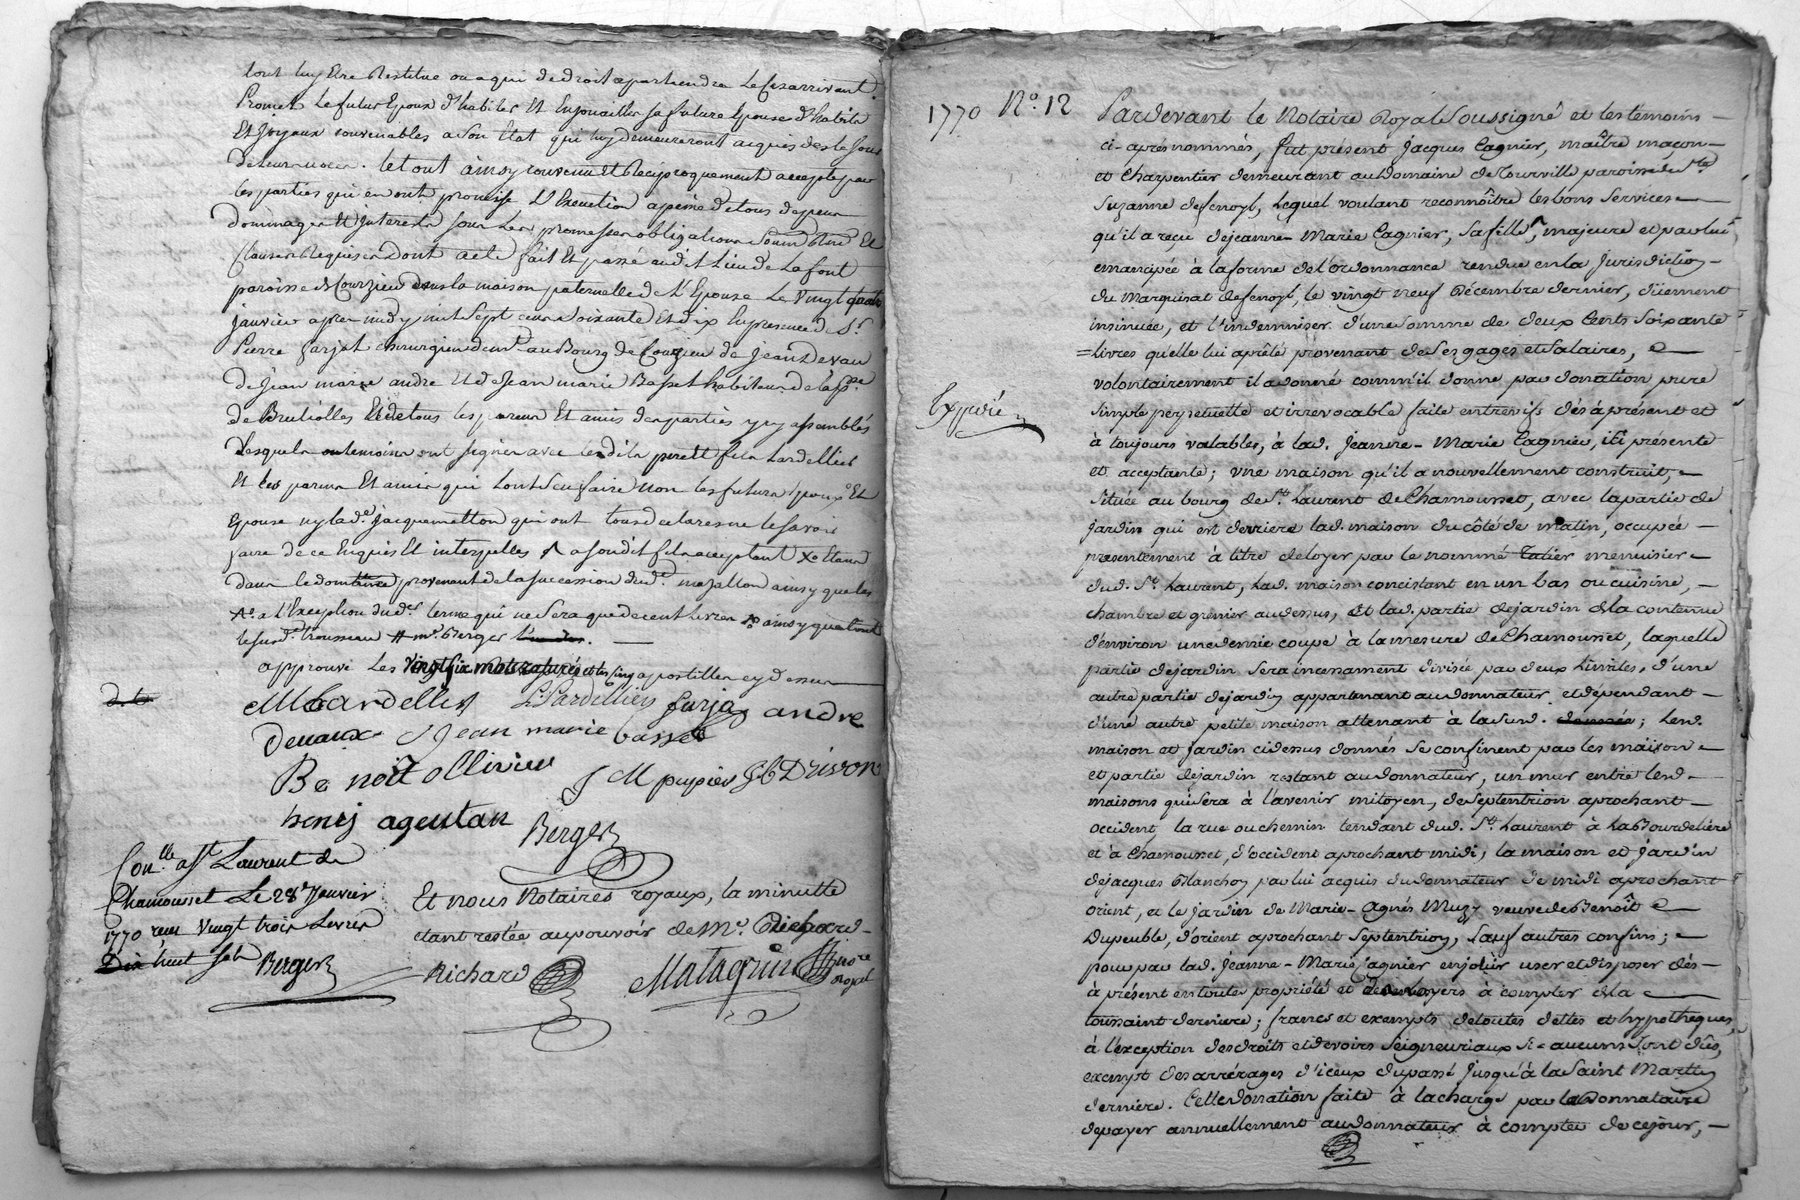 tout luy Etre Restitue ou a qui de droit apartiendra le Cas arrivant.
Promet le futur Epoux d'habiller Et Enjouailler sa future Epouse d'habits
Et Joyaux convenables a Son Etat qui luy demeureront acquis des le Jour
de leurs noces. le tout ainsy convenu Et Reciproquement accepté par
les parties qui en ont promise L'Execution a peine de tous depens
dommages Et Interets sous les promesses obligations Soumissions Et
Clauses Requises Dont acte fait Et passé audit Lieu de La font
paroisse de Courzieu dans la maison paternelle de L'Epouse Le Vingt quatre
janvier apres midy mil Sept cents Soixante Et dix En presence de Sr.
Pierre farjat chirurgien demt. au Bourg de Courzieu de Jean Devau
de Jean marie andre Et de Jean marie Basset habitans de la psse
de Brulliolles Et de tous les parens Et amis des parties y assemblés
Desquels ont signer avec Lesdits fils Lardellier
Et les parens Et amis qui l'ont Scu faire non les futurs Epoux Et
Epouse ny lad.e Jacquemetton qui ont tous declares ne le Savoir
faire de ce Enquis Et interpelles a sondit fils acceptant
Dans le domaine provenant de la succession dud. mazallon ainsy que les
a l'Exception dud. terme qui ne Sera que de cent Livres ainsy que
le susd. trousseau # me. Berger
approuvé les Vingt six mots raturés et les cinq apostilles cy dessus
MLardellier L. Lardellier farjat andre
Devaux Jean marie basset
Benoit ollivier J M pupier Jb Drivon
henij ageutan Berger
Conlle. a St. Laurent de
Chamousset Le 28e. Janvier
1770 reçu Vingt trois Livres
Dix huit sols Berger
Et nous Notaires royaux, la minutte
étant restée au pouvoir de Me. Richard
Richard Matagrin Nore Royal
1770 No. 12
Pardevant le Notaire Royal Soussigné et les témoins
ci-après nommés, fut présent Jacques Cagnier, maître maçon
et Charpentier demeurant au Domaine de Tourville paroisse de Ste
Suzanne de Senoyl, Lequel voulant reconnôitre les bons Services
qu'il a reçu de jeanne-Marie Cagnier, sa fille, majeure et par lui
emancipée à la forme de l'ordonnance rendue en la Jurisdiction
du Marquisat de Senoyl, le vingt neuf Décembre dernier, düement
insinuée, et l'indemniser d'une somme de deux Cents Soixante
=livres qu'elle lui a prêté provenant de Ses gages et Salaires,
volontairement il a donné comm'il donne par donation pure
simple perpetuelle et irrevocable faite entrevifs dés à présent et
à toujours valables, à lad. Jeanne-Marie Cagnier, ici présente
et acceptante; une maison qu'il a nouvellement construit,
Située au bourg de St. Laurent de Chamousset, avec la partie de
jardin qui est derriere lad. maison du côté de matin, occupée
presentement à titre de loyer par le nommé Tatier menuisier
dud. St. Laurent, Lad. maison concistant en un bas ou cuisine,
chambre et grenier au dessus, Et lad. partie de jardin de la contenue
d'environ une demie coupe à la mesure de Chamousset, laquelle
partie de jardin sera incessament divisée par deux Limites, d'une
autre partie de jardin appartenant au donnateur et dépendant
d'une autre petite maison attenant à la Susd. donnée; Lesd.
maison et jardin cidessus donnés se confinent par les maison
et partie de jardin restant au donnateur, un mur entre lesd.
maisons qui sera à l'avenir mitoyen, de Septentrion aprochant
occident, la rue ou chemin tendant dud. St. Laurent à La Bourdelière
et à Chamousset, d'occident aprochant midi, la maison et jardin
de jacques Blanchon par lui acquis du donnateur de midi aprochant
orient, et le jardin de Marie-Agnés Muzy veuve de Benoît
Dupeuble, d'orient aprochant Septentrion, Sauf autres confins;
pour par lad. Jeanne-Marie Cagnier en joüir user et disposer dés
à présent en toute propriété et des loyers à compter de la
toussaint derniere; francs et exempts de toutes dettes et hypotheques
à l'exception des droits et devoirs Seigneuriaux Si aucuns Sont dûs,
exempt des arrérages d'iceux du passé jusqu'à la Saint Martin
derniere. Cette donation faite à la charge par la donnataire
de payer annuellement au donnateur à compter de ce jour,
Expédié